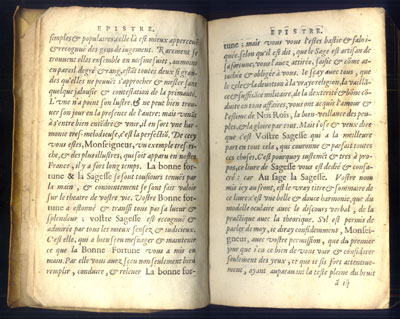 EPISTRE,
simples & populaires, elle là est mieux apperceuë
& recognuë des gens de iugement. Rarement se
trouuent elles ensemble en nos mesures, au moins
en pareil degré & rang, estās toutes deux si grandes
qu'elles ne peuuēt s'approcher & mesler sans
quelque jalousie & contestation de la primauté.
L'vne n'a point son lustre, & ne peut bien trouuer
son jour en la presence de l'autre: mais venās
à s'entre bien entēdre & vnir, il en sort vne harmonie
tres-melodieuse, c'est la perfectiō. De cecy
vous estes, Monseigneur, vn exemple tres-riche,
& des plus illustres, qui soit apparu en nostre
France, il y a fort long temps. La bonne fortune
& la Sagesse se sont tousiours tenuës par
la main, & conioinctement se sont fait valoir
sur le theatre de vostre vie. Vostre Bonne fortune
a estonné & transsi tous par sa lueur &
splendeur; vostre Sagesse est recognuë &
admirée par tous les mieux sensez & iudicieux.
C'est elle, qui a bien sceu mesnager & maintenir
ce que la Bonne Fortune vous a mis en
main. Par elle vous auez sceu non seulement bien
remplir, conduire, & releuer La bonne for-
EPISTRE.
tune: mais vous vous l'estes bastie & fabriquée,
selon qu'il est dit, que le Sage est artisan de
sa fortune, vous l'auez attirée, saisie & côme attachée
& obligée à vous. Ie sçay auec tous, que
le zele & la deuotion à la vraye religion, la vaillāce
& suffisāce militaire, de la dexterité & bōne cōduite
en tous affaires, vous ont acquis l'amour &
l'estime de Nos Rois, la bien-veillance des peuples,
& la gloire par tout. Mais i'ose & veux dire
que c'est Vostre Sagesse qui a la meilleure
part en tout cela, qui couronne & parfait toutes
choses. C'est pourquoy iustemēt & tres à propos,
ce liure de Sagesse vous est dedié & consacré:
car Au sage la Sagesse. Vostre nom
mis icy au front, est le vray titre & sommaire de
ce liure: c'est vne belle & douce harmonie, que du
modelle oculaire auec le discours verbal, de la
practique auec la theorique. S'il est permis de
parler de moy, ie diray confidemment, Monseigneur,
auec vostre permission, que du premier
jour que i'eu ce bien de vous voir & considerer
seulement des yeux, ce que ie fis fort attentiuement,
ayant auparauant la teste pleine du bruit
ã ij